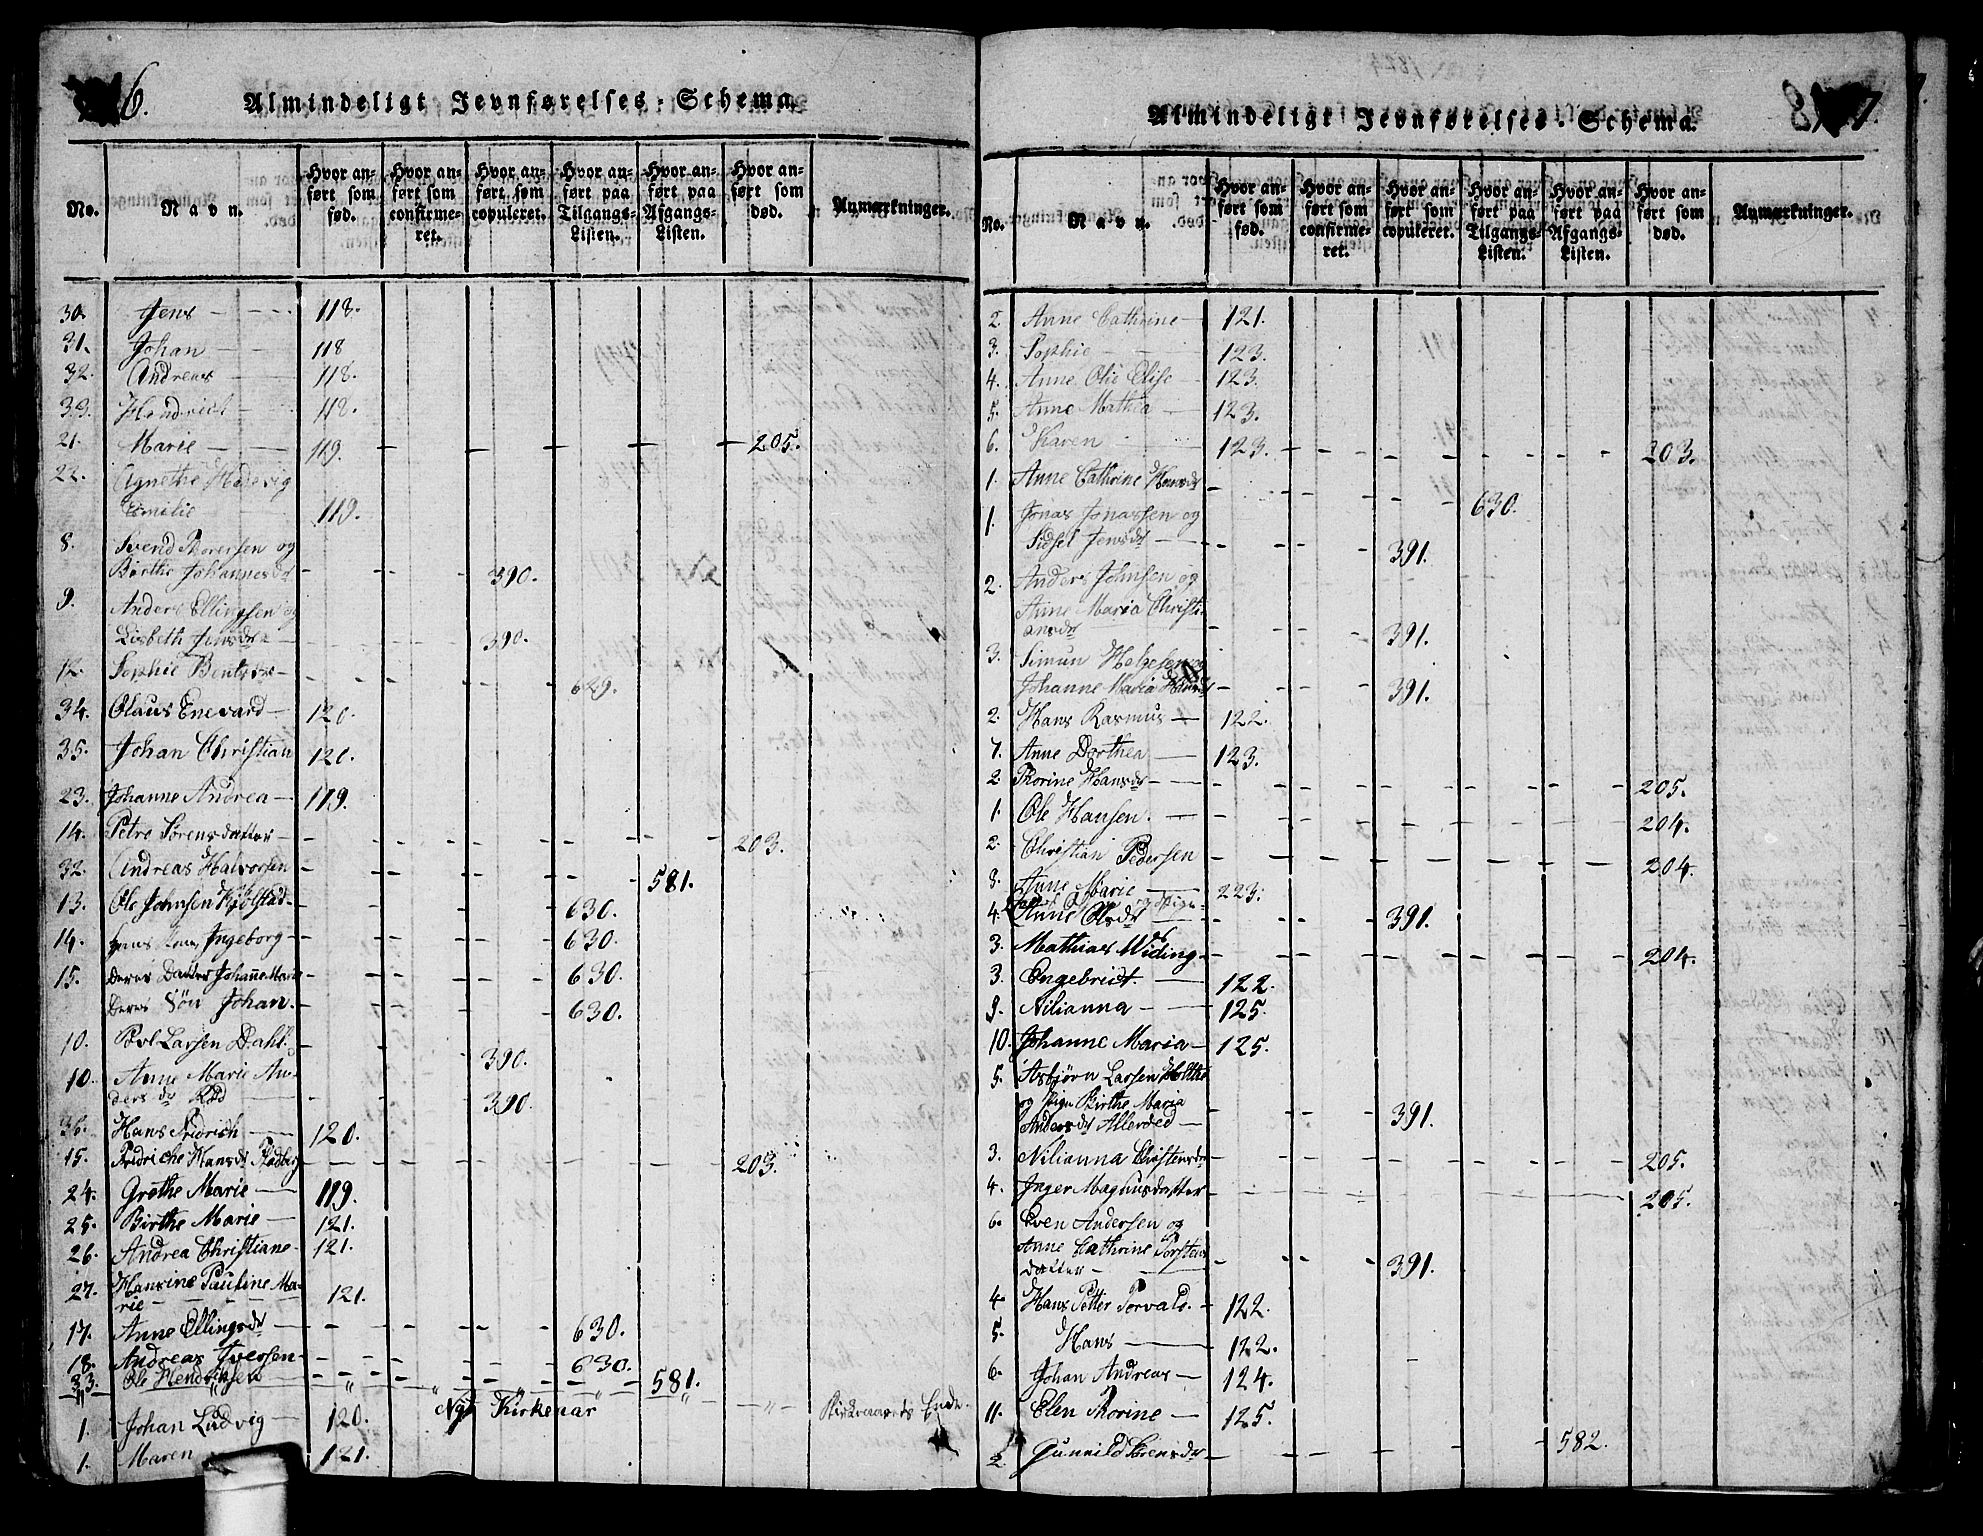 6.
Almindeligt Jevnførelses-Schema.
No.
Navn.
Hvor anført som fød.
Hvor anført som confirmeret.
Hvor anført som copuleret.
Hvor anført paa Tilgangs-Listen.
Hvor anført paa Afgangs-Listen.
Hvor anført som død.
Anmærkninger.
30. Jens 118.
31. Johan 118
32. Andreas 118.
33. Hendrich 118.
21. Marie 119. 205.
22. Agnethe Hedevig
Emilie 119.
8. Svend Thoresen og
Birthe Johannesdr 390.
9. Anders Ellingsen og
Lisbeth Jensdr 390.
12. Sophie Bentsdr 629.
34. Olaus Enevard 120.
35. Johan Christian 120.
23. Johanne Andrea 119.
14. Petre Sørensdatter 203.
32. Andreas Halvorsen 581.
13. Ole Johnsen Kjølstad 630.
14. Hans Kone Ingeborg 630.
15. Deres Datter Johanne Marie 630.
Deres Søn Johan. 630.
10. Povl Larsen Dahl. 390.
10. Anne Marie An-
dersdr Rød 390.
36. Hans Fridrich 120.
15. Fridriche Hansdr Rødberg 203.
24. Grethe Marie 119.
25. Birthe Marie 121.
26. Andrea Christiane 121.
27. Hansine Pauline Ma-
rie 121.
17. Anne Ellingsdr 630.
18. Andreas Iversen 630.
33. Ole Hendrichsen 581.
Nyt Kirkeaar
Kirkeaarets Ende.
1. Johan Ludvig 120.
1. Maren 121.
7.
Almindeligt Jevnførelses-Schema.
No.
Navn.
Hvor anført som fød.
Hvor anført som confirmeret.
Hvor anført som copuleret.
Hvor anført paa Tilgangs-Listen.
Hvor anført paa Afgangs-Listen.
Hvor anført som død.
Anmærkninger.
2. Anne Cathrine 121.
3. Sophie 123.
4. Anne Olie Elise 123.
5. Anne Mathea 123.
6. Karen 123. 203.
1. Anne Cathrine Hansdr 630.
1. Jonas Jonassen og
Sidsel Jensdr 391.
2. Anders Johnsen og
Anne Maria Christi-
ansdr 391.
3. Simun Helgesen og
Johanne Maria Hansdr 391.
2. Hans Rasmus 122.
7. Anne Dorthea 123.
2. Thorine Hansdr 205.
1. Ole Hansen. 204.
2. Christian Pedersen 204.
8. Anne Marie 223.
4. Anne Olsdr 391.
3. Mathias Widing 204.
3. Engebrict. 122.
9. Nilianna 125.
10. Johanne Maria 125.
5. Asbjørn Larsen Holthe
og Pige Birthe Maria
Andersdr Allerød 391.
3. Nilianna Christensdr 205.
4. Inger Magnusdatter 205.
6. Even Andersen og
Anne Cathrine Torstens
datter 391.
4. Hans Petter Torvald. 122.
5. Hans 122.
6. Johan Andreas 124.
11. Elen Thorine 125.
2. Gunnild Sørensdr 582.